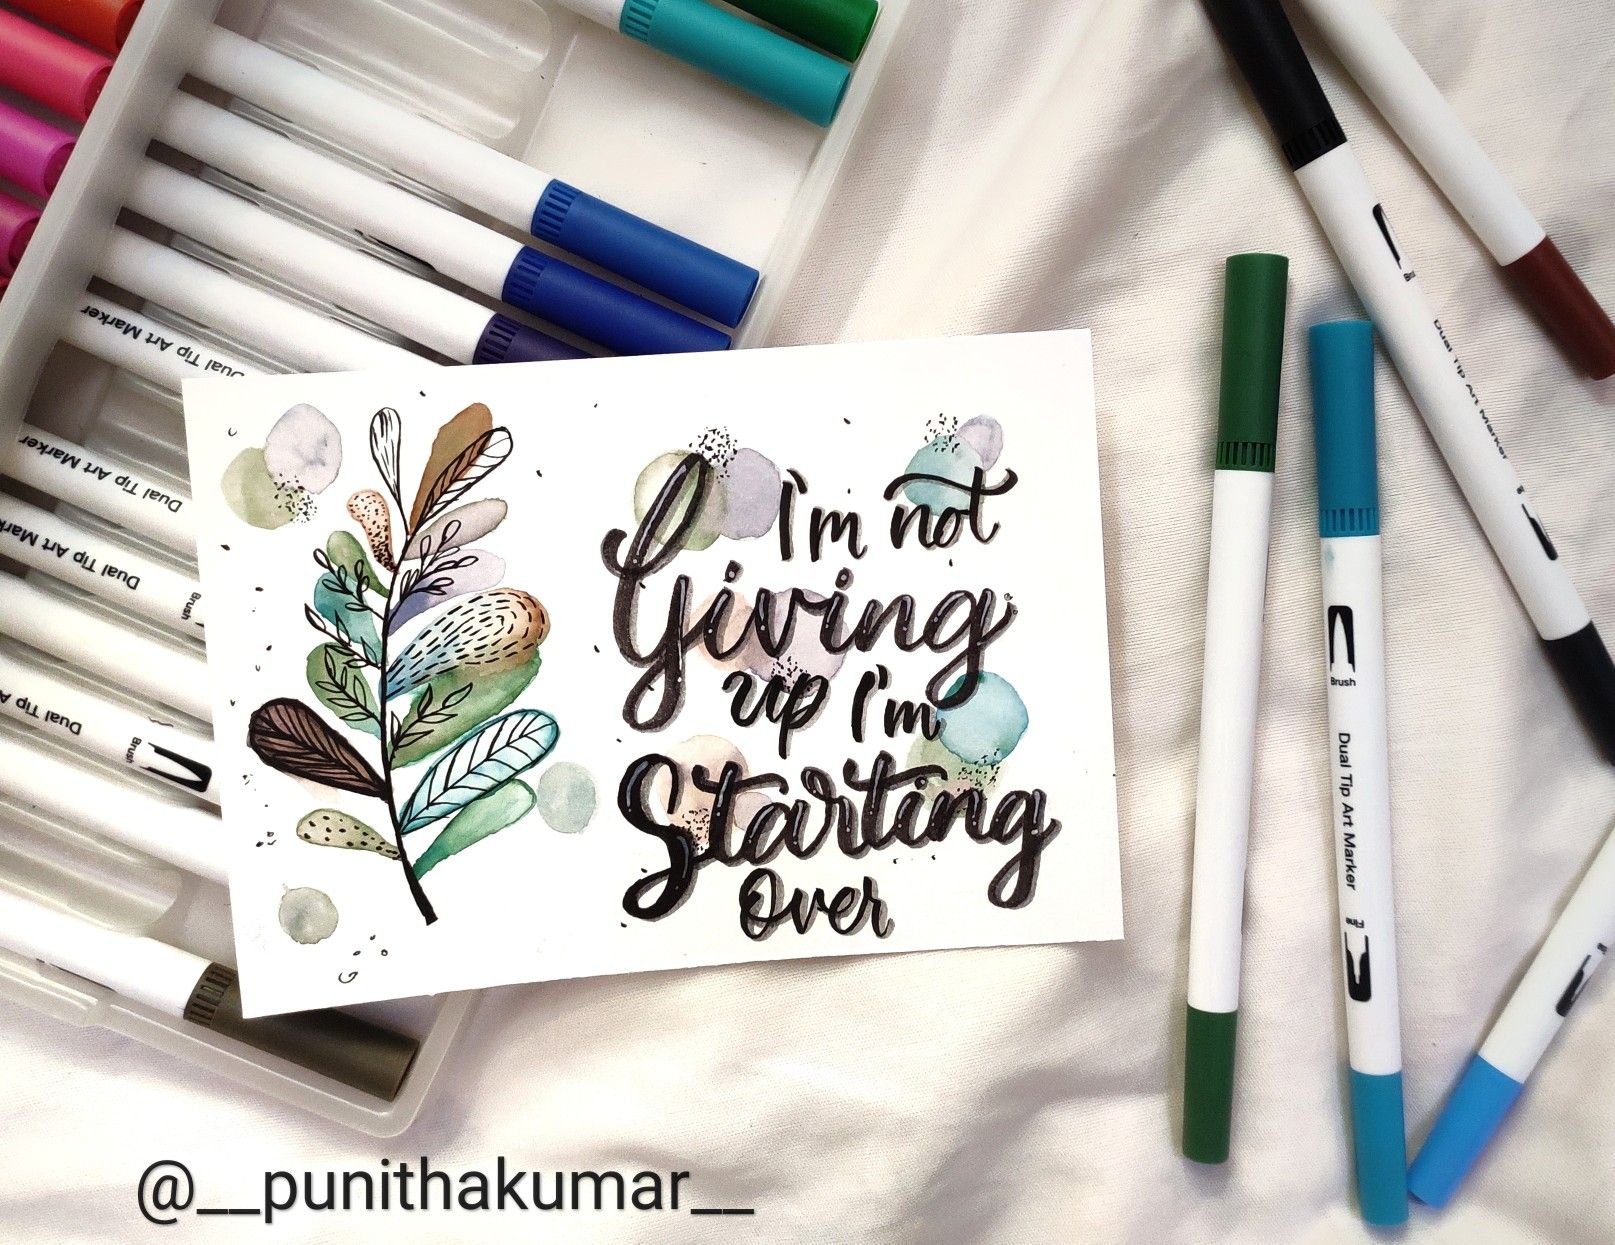 I'm not
Giving
up I'm
Starting
Over
Dual Tip Art Marker
Dual Tip Art Marker
Dual Tip Art Marker
Brush
Dual Tip
Brush
Dual Tip Art Marker
Brush
Dual Tip Art Marker
Fine
@__punithakumar__